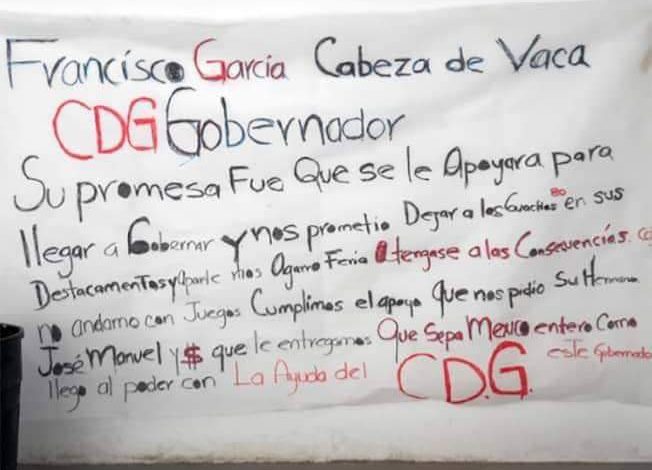 Francisco Garcia Cabeza de Vaca
CDG Gobernador
Su promesa Fue Que se le Apoyara para
llegar a Gobernar y nos prometio Dejar a los Guachos en sus
Destacamentos y Aparte mas Agarro Feria Atengase a las Consecuencias.
no andamo con Juegos Cumplimos el apoyo Que nos pidio Su Hermano
José Manuel y $ que le entregamos Que Sepa Mexico entero Como
llego al poder con La Ayuda del C.D.G. este Gobernador